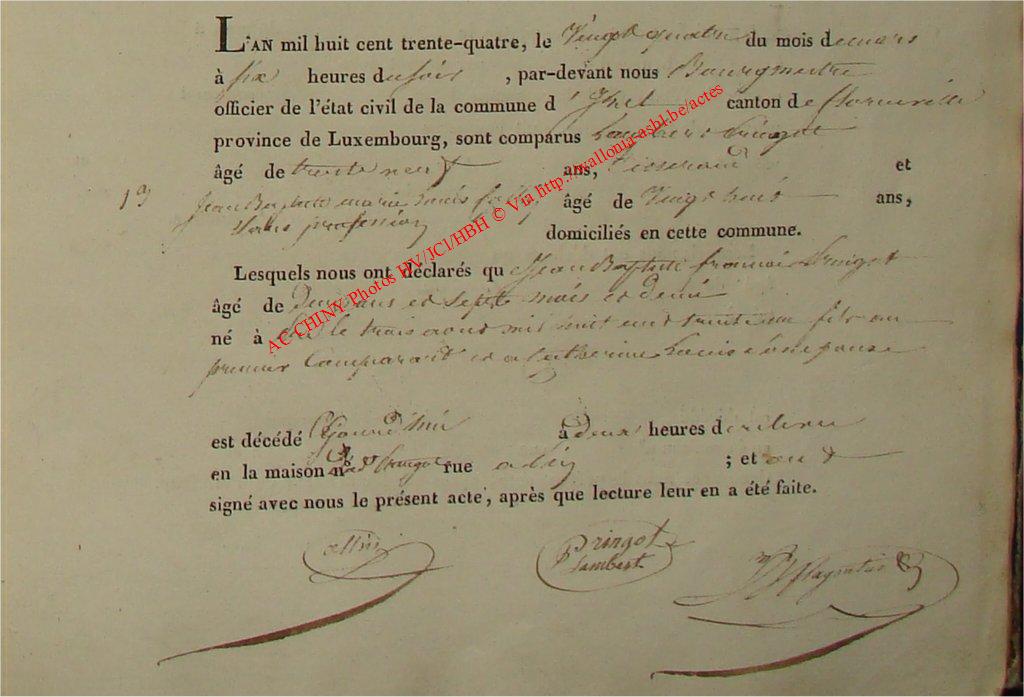 L'AN mil huit cent trente-quatre, le Vingt quatre du mois de mars
à six heures du soir , par-devant nous Bourgmestre
officier de l'état civil de la commune d' canton de florenville
province de Luxembourg, sont comparus Lambert Pringot
âgé de trente neuf ans, tisserand et
19
Jean Baptiste marie âgé de Vingt huit ans,
sans profession domiciliés en cette commune.
Lesquels nous ont déclarés que Jean Baptiste francois Pringot
âgé de deux ans et sept mois et demi
né à le trois aout mil huit cent trente un fils au
premier Comparant et a Catherine Louis son epouse
est décédé à deux heures de relevée
en la maison n° rue ; et ont
signé avec nous le présent acte, après que lecture leur en a été faite.
Pringot
Lambert
AC CHINY Photos HV/JCI/HBH © Via http://wallonia-asbl.be/actes